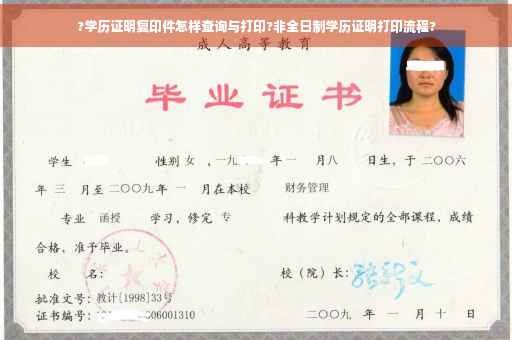 ?学历证明复印件怎样查询与打印?非全日制学历证明打印流程?
成人高等教育
毕业证书
学生 性别 女 ，一九 年一 月八 日生，于二〇〇六
年 三 月至二〇〇九年 一 月在本校 财务管理
专业 函授 学习，修完 专 科教学计划规定的全部课程，成绩
合格，准予毕业。
校 名： 校（院）长：
批准文号：教计[1998]33号
证书编号： 06001310 二〇〇九 年 一 月 十 日